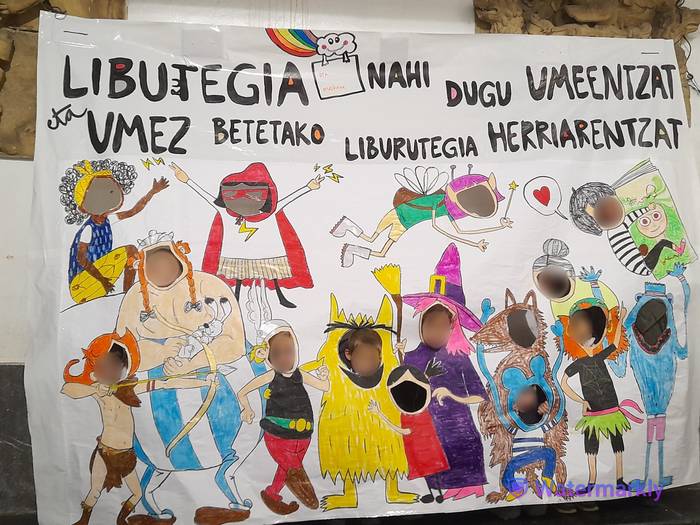 LIBURUTEGIA NAHI DUGU UMEENTZAT
eta UMEZ BETETAKO LIBURUTEGIA HERRIARENTZAT
Watermarkly